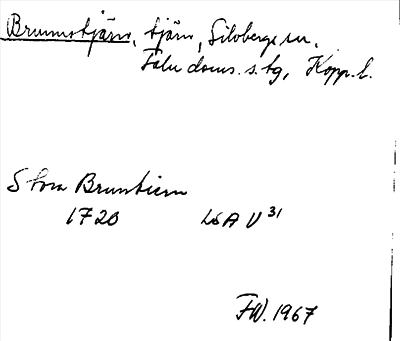 Brunnstjärn, tjärn, Silvbergs sn,
Falu doms. s. tg, Kopp. l.
Stora Bruntiern
1720 LSA V 31
FW. 1967